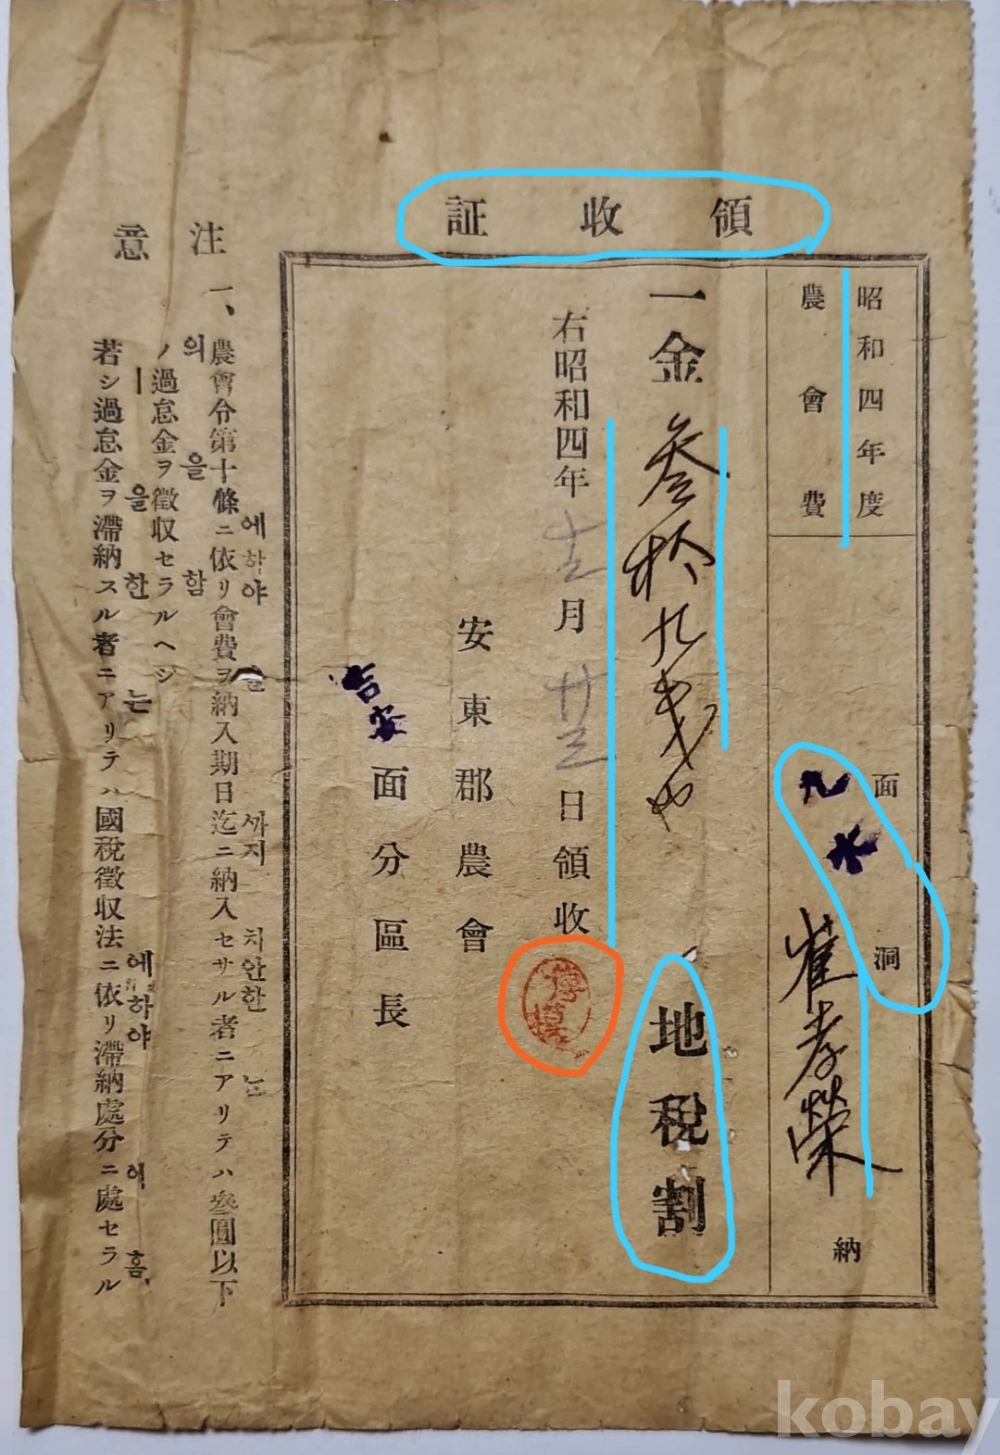 領收証
昭和四年度
農會費
面 九水洞
崔孝榮 納
一金 参拾九戋也
地稅割
右昭和四年 十二月 廿三日領收
安東郡農會
吉安面分區長
注意
一、農會令第十條ニ依リ會費ヲ納入期日迄ニ納入セサル者ニアリテハ參圓以下
에하야 를 까지 치안한 는
ノ過怠金ヲ徵収セラルヘシ
의 을 함
若シ過怠金ヲ滯納スル者ニアリテハ國稅徵収法ニ依リ滯納處分ニ處セラル
ㅣ 을 한 는 에 하야 에 홈,
kobay